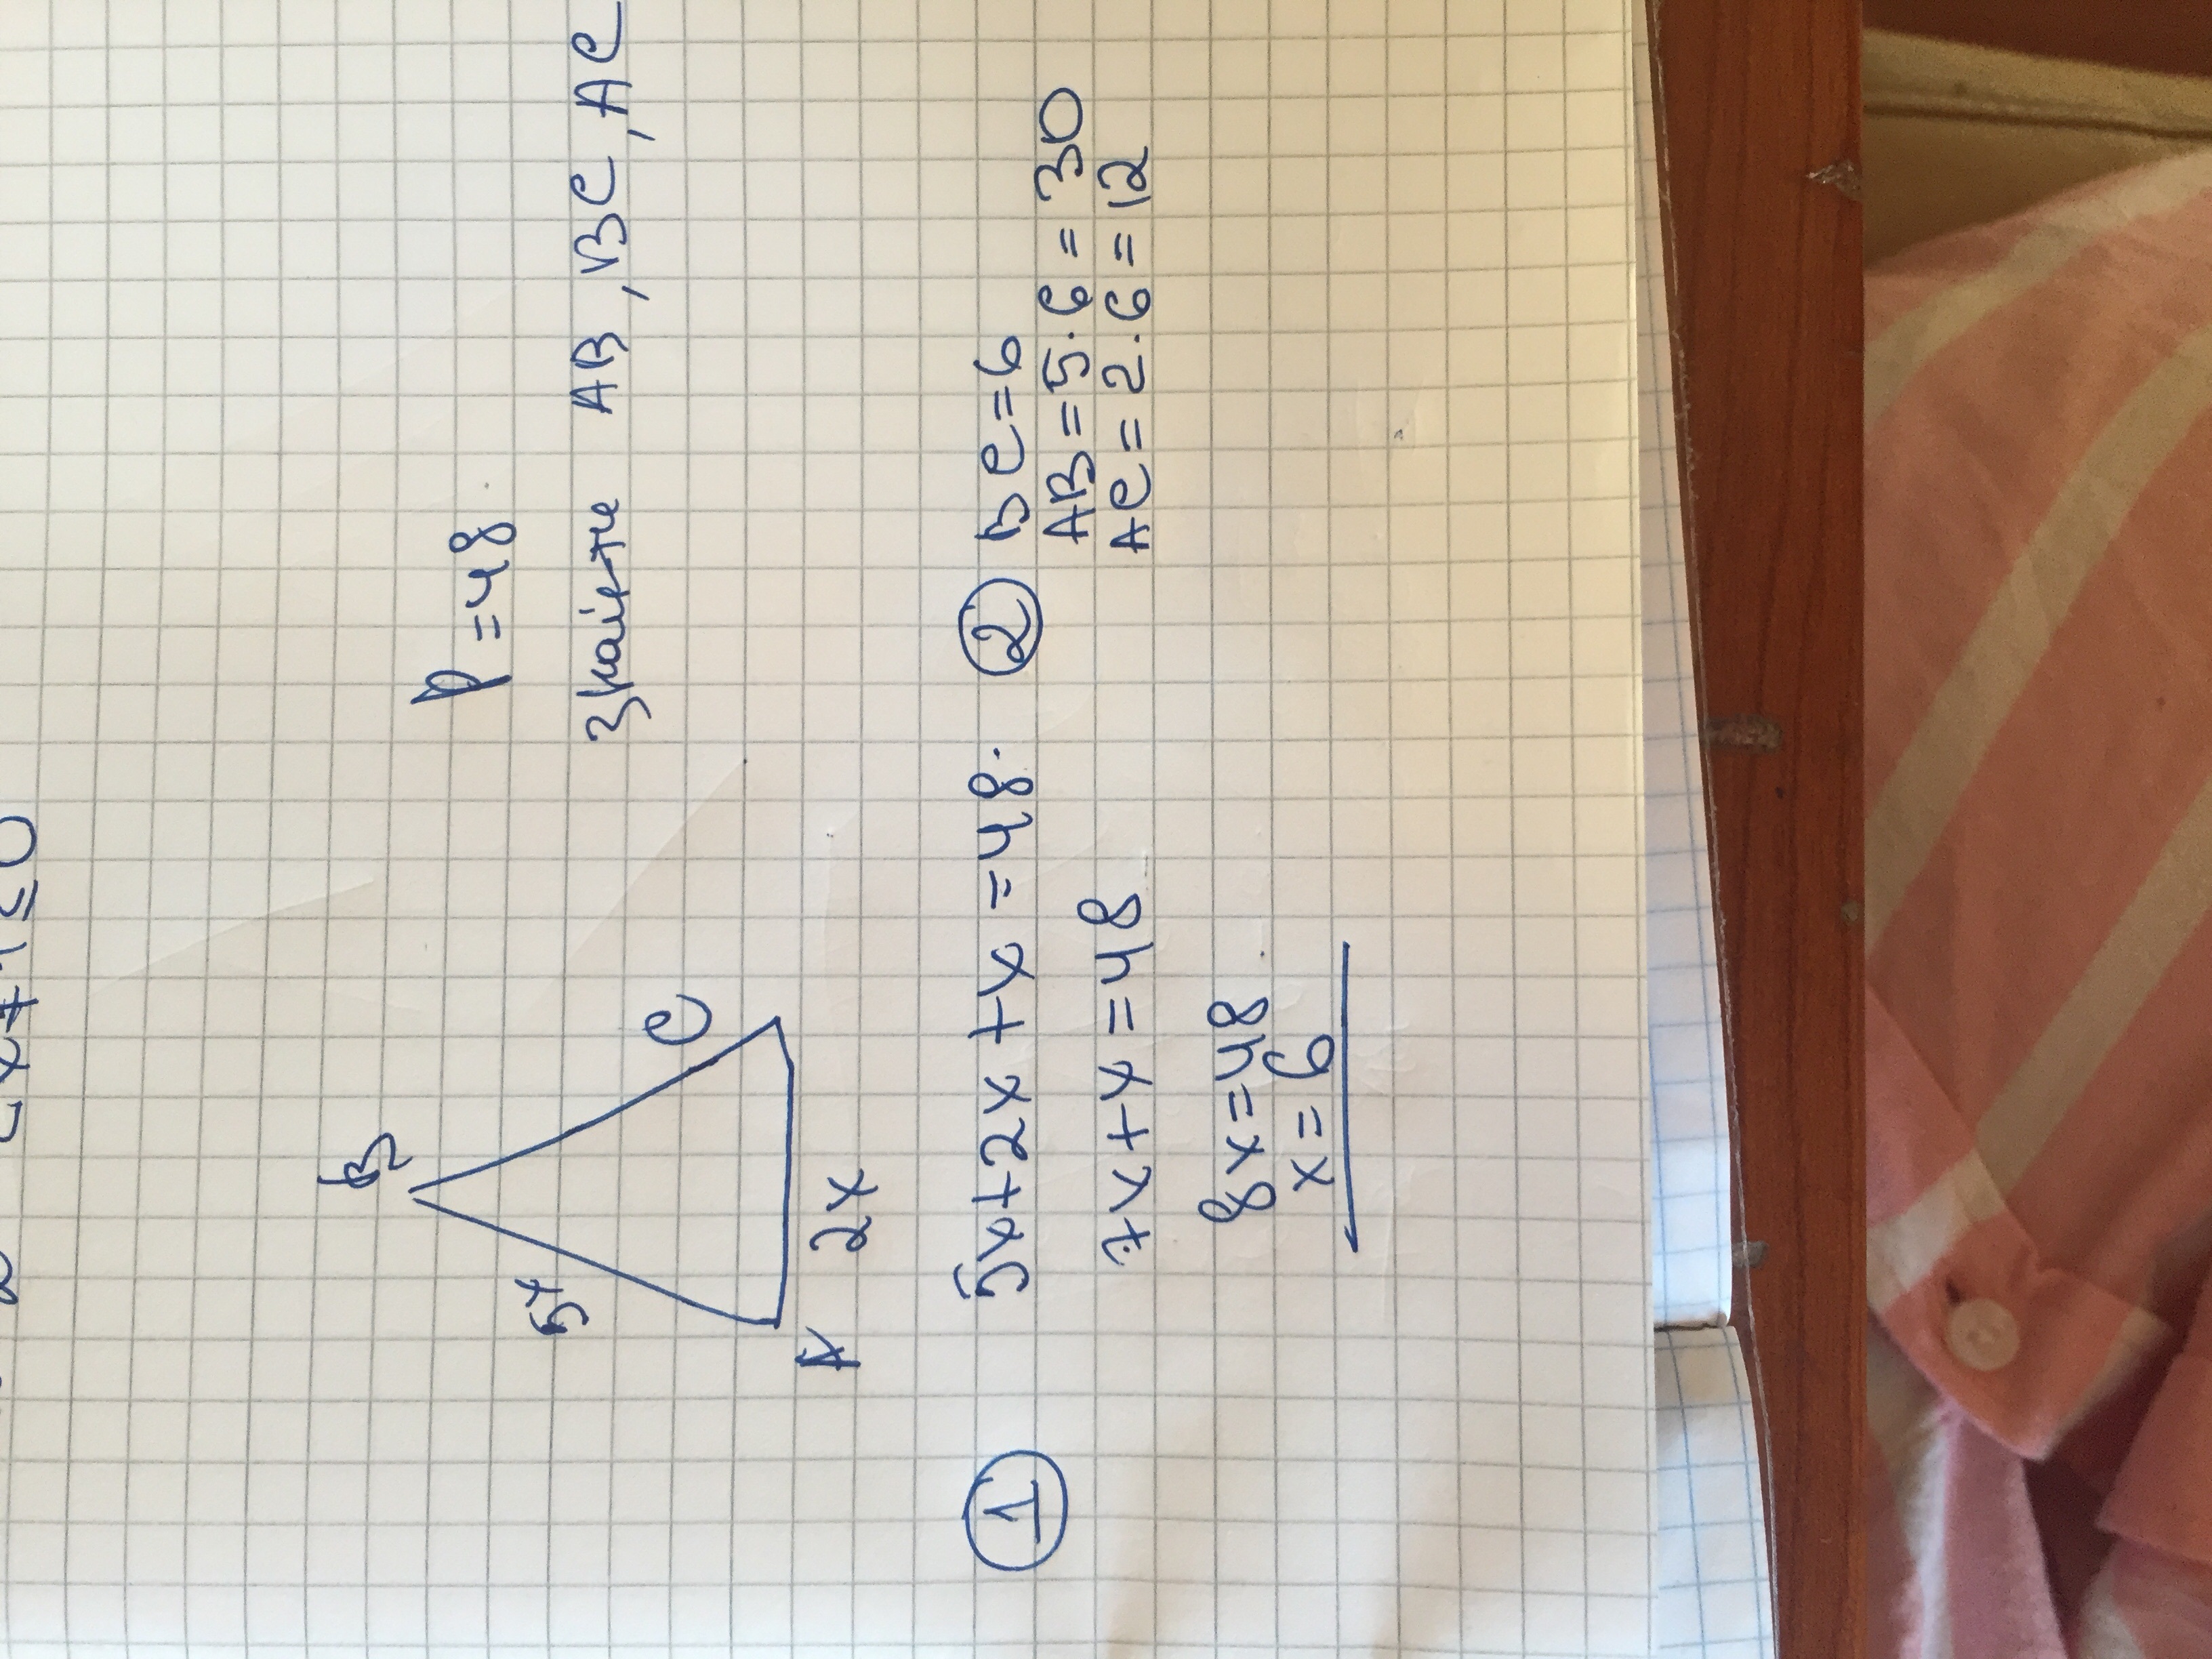 B
5x
C
A
2x
P = 48
Знайти AB, BC, AC
1
5x+2x+x=48.
7x+x=48
8x=48
x=6
2
BC=6
AB=5·6=30
AC=2·6=12